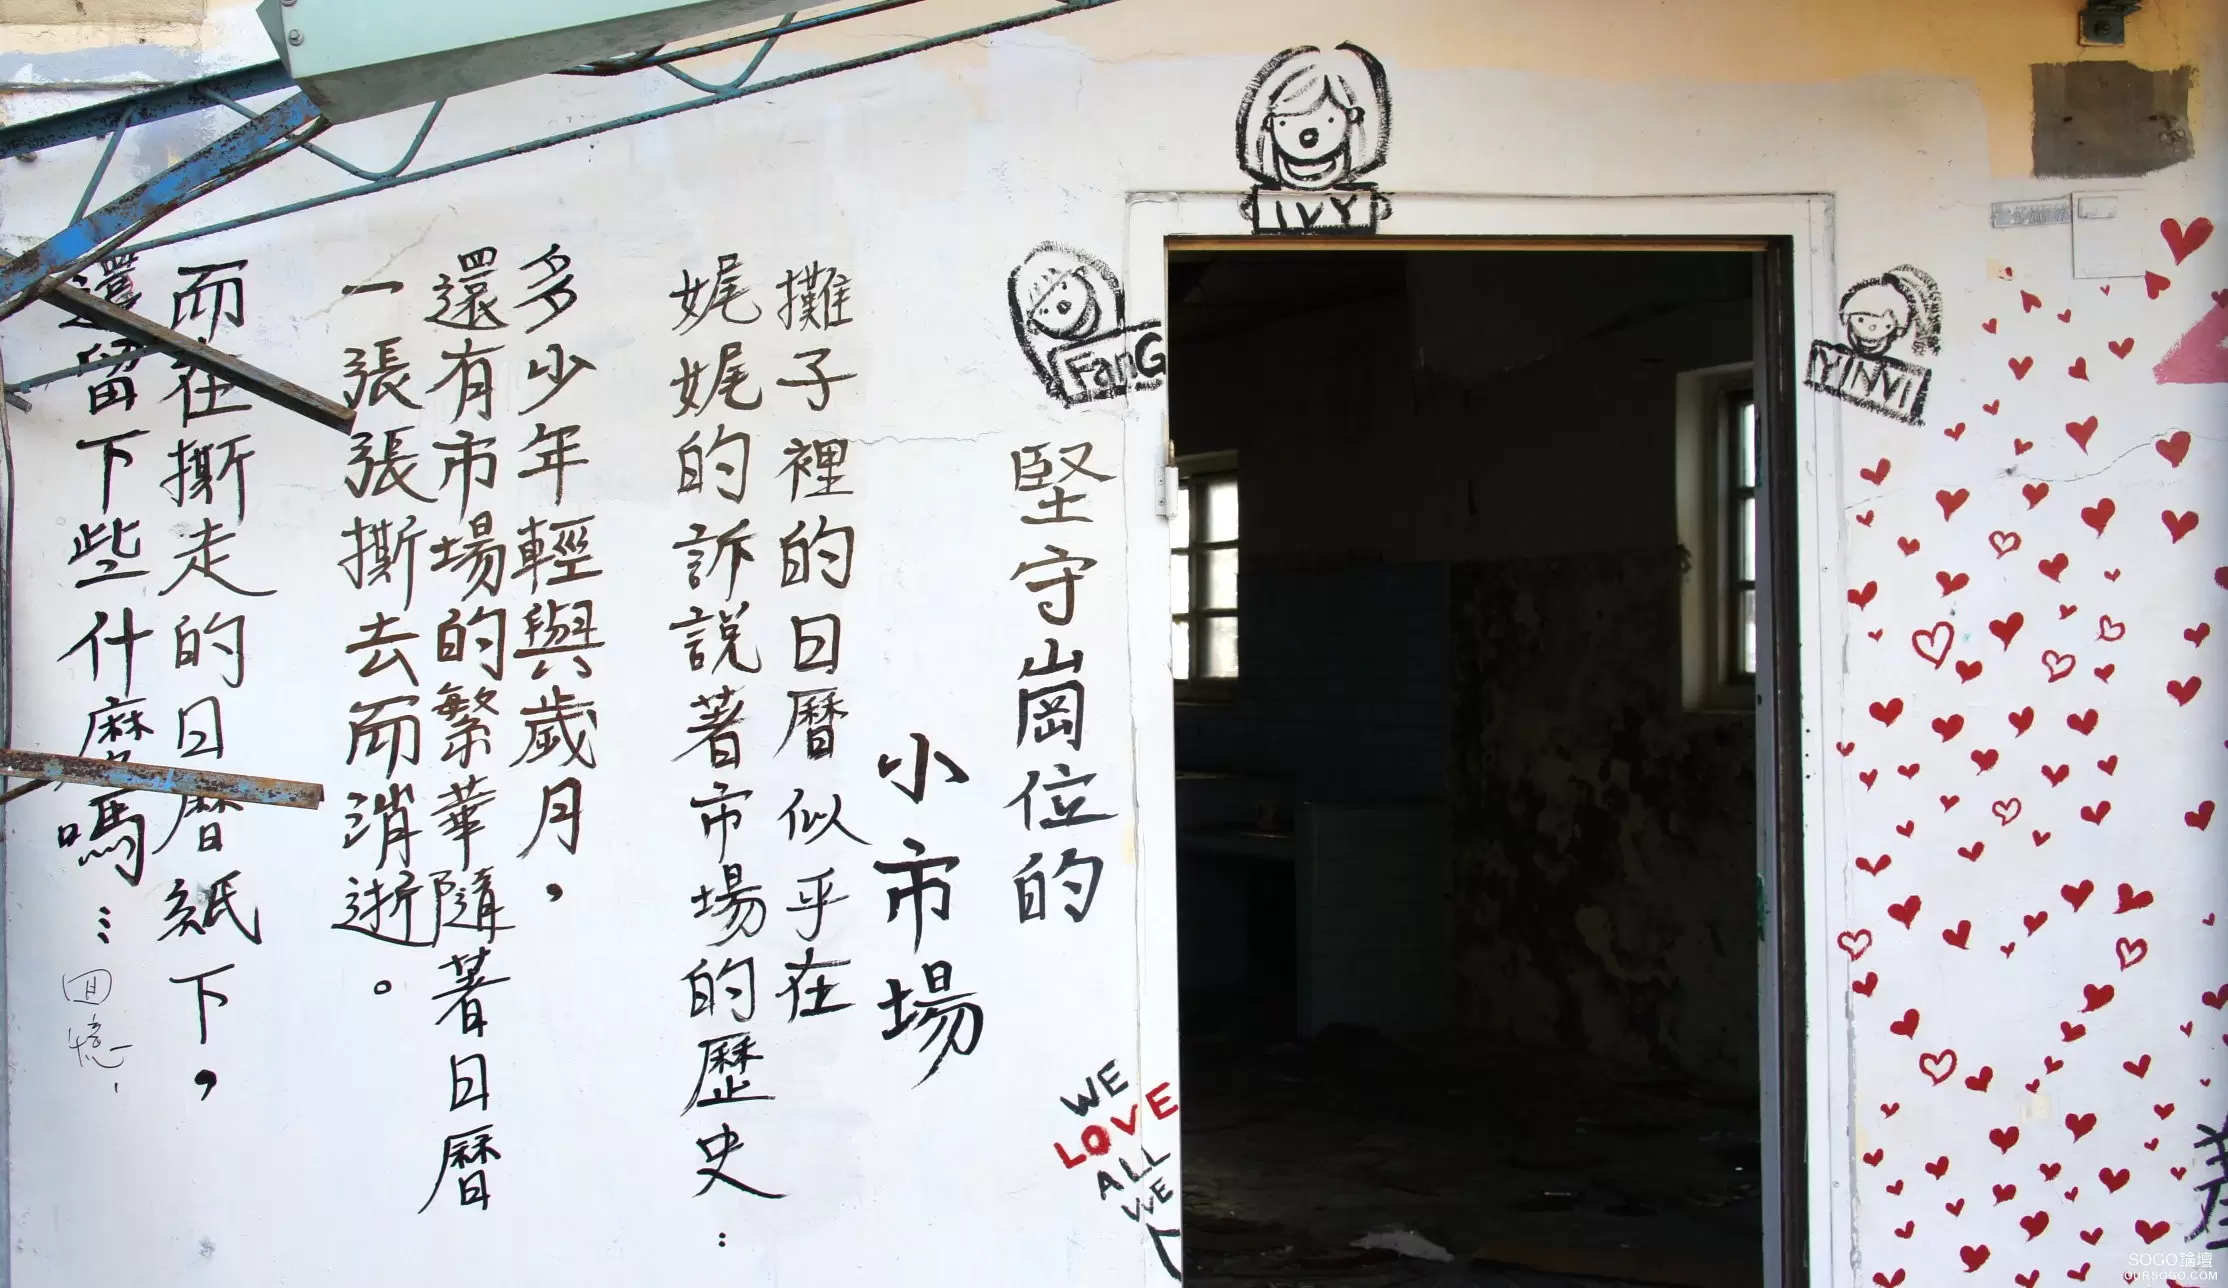 堅守崗位的
小市場
攤子裡的日曆似乎在
娓娓的訴說著市場的歷史…
多少年輕與歲月，
還有市場的繁華隨著日曆
一張張撕去而消逝。
而在撕走的日曆紙下，
還留下些什麼嗎…
回憶
IVY
FanG
YINVI
WE
LOVE
ALL
WE
SOGO論壇
OURSOGO.COM